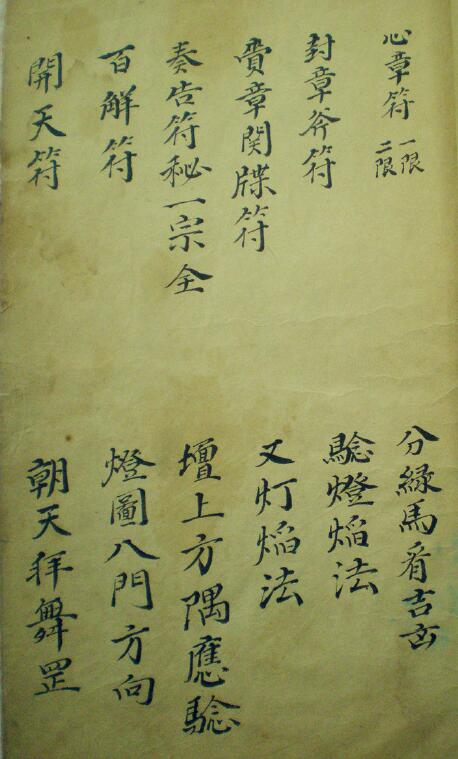 心章符 一限 二限
封章斧符
賫章関牒符
奏告符秘一宗全
百解符
開天符
分緑馬看吉凶
騐燈焰法
又灯焰法
壇上方隅應騐
燈圖八門方向
朝天拜舞罡